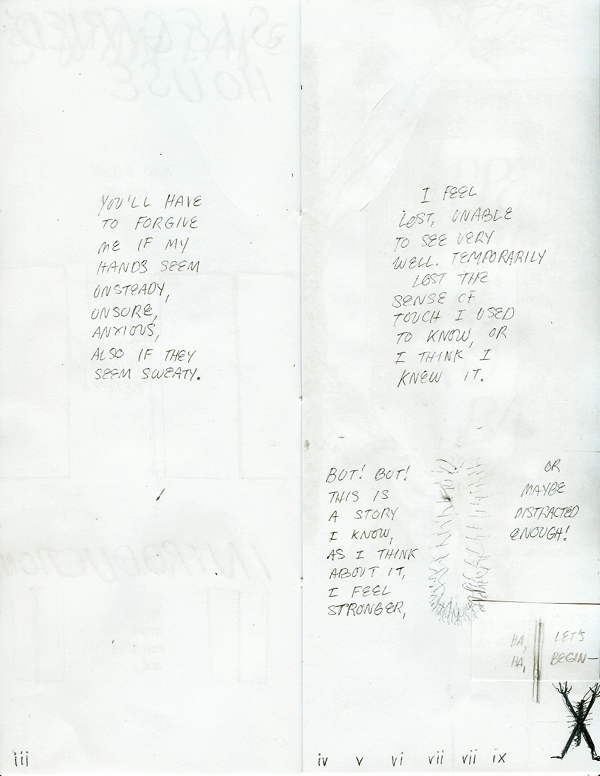 YOU'LL HAVE
TO FORGIVE
ME IF MY
HANDS SEEM
UNSTEADY,
UNSURE,
ANXIOUS,
ALSO IF THEY
SEEM SWEATY.
I FEEL
LOST, UNABLE
TO SEE VERY
WELL. TEMPORARILY
LOST THE
SENSE OF
TOUCH I USED
TO KNOW, OR
I THINK I
KNEW IT.
BUT! BUT!
THIS IS
A STORY
I KNOW,
AS I THINK
ABOUT IT,
I FEEL
STRONGER,
OR
MAYBE
DISTRACTED
ENOUGH!
HA,
HA,
LET'S
BEGIN—
iii
iv v vi vii vii ix
INTRODUCTION
HOUSE